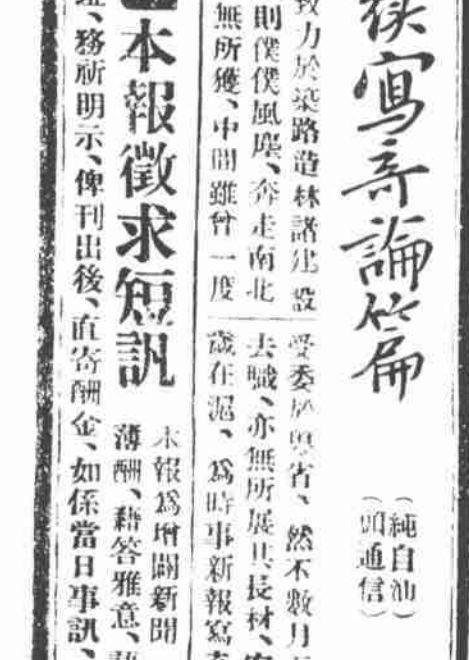 寫奇論篇
(純自汕)
(頭通信)
致力於築路造林諸建設
則僕僕風塵、奔走南北
無所獲、中間雖曾一度
受委於粵省、然不數月
去職、亦無所展其長材、
歲在滬、為時事新報寫
本報徵求短訊
本報為增闢新聞
薄酬、藉答雅意、
務祈明示、俾刊出後、直寄酬金、如係當日事訊、